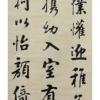 僕懽迎稚
攜幼入室有
柯以怡顏倚